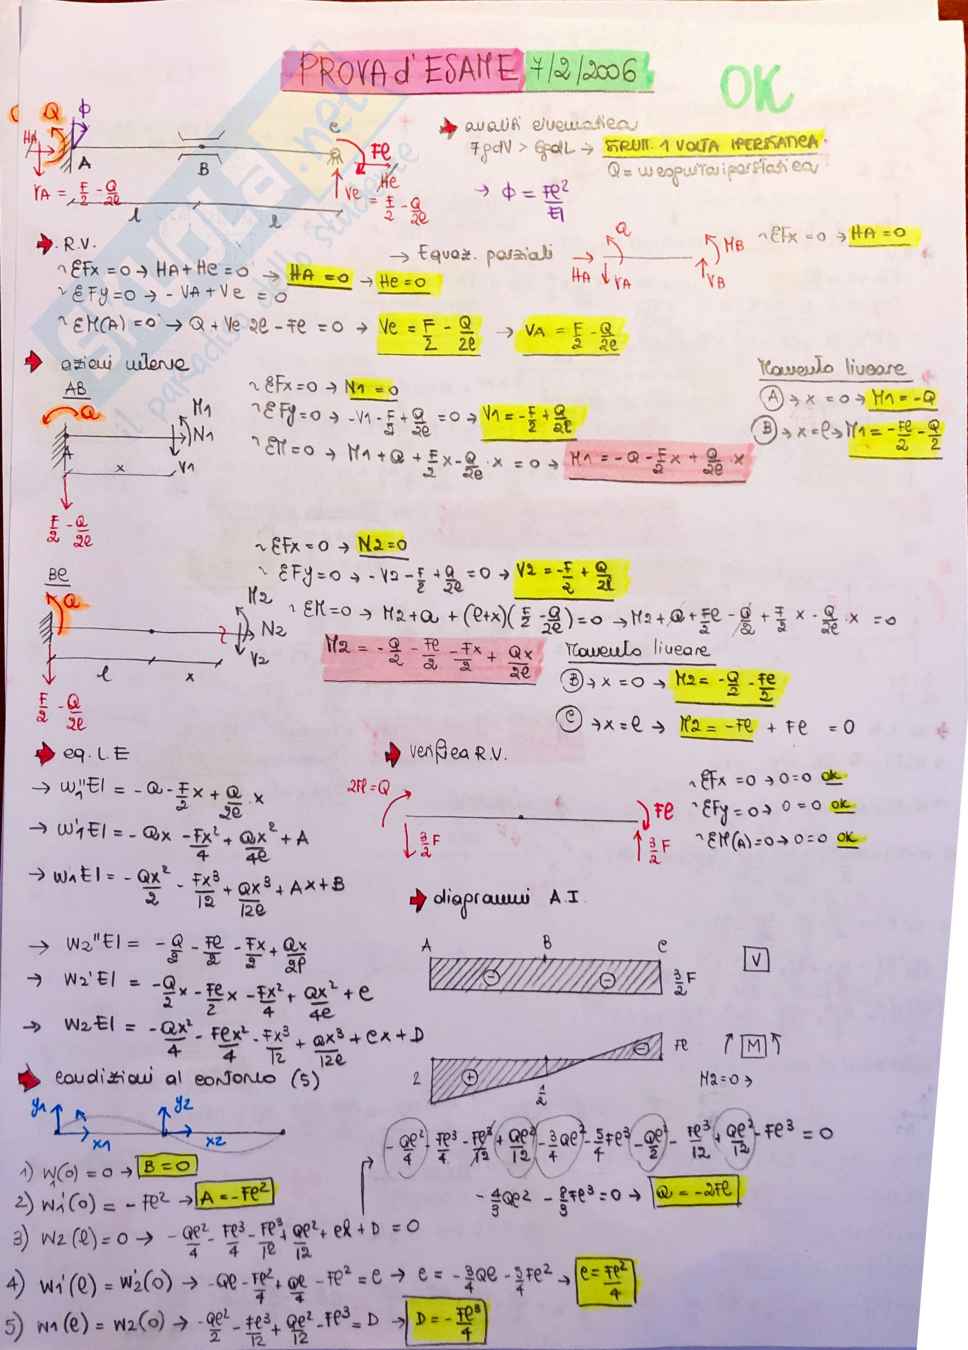 PROVA d'ESAME 7/2/2006
OK
Q ϕ
HA A B C Fl
VA = F/2 - Q/2l
l l
Ve = F/2 - Q/2l
He
→ analisi cinematica
7gdV > 6gdL → STRUTT. 1 VOLTA IPERSTATICA.
Q = incognita iperstatica
→ ϕ = Fl²/EI
R.V.
~ΣFx = 0 → HA + He = 0 → HA = 0 → He = 0
~ΣFy = 0 → -VA + Ve = 0
~ΣM(A) = 0 → Q + Ve 2l - Fl = 0 → Ve = F/2 - Q/2l → VA = F/2 - Q/2l
→ Equaz. parziali
Q HA VA MB VB
~ΣFx = 0 → HA = 0
azioni interne
AB
Q M1 N1 V1 A x
F/2 - Q/2l
~ΣFx = 0 → N1 = 0
~ΣFy = 0 → -V1 - F/2 + Q/2l = 0 → V1 = -F/2 + Q/2l
~ΣM = 0 → M1 + Q + F/2 x - Q/2l · x = 0 → M1 = -Q - F/2 x + Q/2l · x
Momento lineare
A → x = 0 → M1 = -Q
B → x = l → M1 = -Fl/2 - Q/2
BC
Q M2 N2 V2
l x
F/2 - Q/2l
~ΣFx = 0 → N2 = 0
~ΣFy = 0 → -V2 - F/2 + Q/2l = 0 → V2 = -F/2 + Q/2l
~ΣM = 0 → M2 + Q + (l+x)(F/2 - Q/2l) = 0 → M2 + Q + Fl/2 - Q/2 + F/2 x - Q/2l · x = 0
M2 = -Q/2 - Fl/2 - Fx/2 + Qx/2l
Momento lineare
B → x = 0 → M2 = -Q/2 - Fl/2
C → x = l → M2 = -Fl + Fl = 0
eq. L.E
→ w1''EI = -Q - F/2 x + Q/2l · x
→ w1'EI = -Qx - Fx²/4 + Qx²/4l + A
→ w1EI = -Qx²/2 - Fx³/12 + Qx³/12l + Ax + B
→ w2''EI = -Q/2 - Fl/2 - Fx/2 + Qx/2l
→ w2'EI = -Q/2 x - Fl/2 x - Fx²/4 + Qx²/4l + C
→ w2EI = -Qx²/4 - Flx²/4 - Fx³/12 + Qx³/12l + Cx + D
verifica R.V.
2Fl = Q Fl
3/2 F 3/2 F
~ΣFx = 0 → 0 = 0 ok
~ΣFy = 0 → 0 = 0 ok
~ΣM(A) = 0 → 0 = 0 OK
diagrammi A.I.
A B C
- - 3/2 F V
2 + 1/2 - Fl M
M2 = 0 →
condizioni al contorno (5)
y1 x1 y2 x2
1) w1(0) = 0 → B = 0
2) w1'(0) = -Fl² → A = -Fl²
3) w2(l) = 0 → -Ql²/4 - Fl³/4 - Fl³/12 + Ql²/12 + Cl + D = 0
→ -Ql²/4 - Fl³/4 - Fl³/12 + Ql²/12 - 3/4 Ql² - 5/4 Fl³ - Ql²/2 - Fl³/12 + Ql²/12 - Fl³ = 0
-4/3 Ql² - 8/3 Fl³ = 0 → Q = -2Fl
4) w1'(l) = w2'(0) → -Ql - Fl²/4 + Ql/4 - Fl² = C → C = -3/4 Ql - 5/4 Fl² → C = Fl²/4
5) w1(l) = w2(0) → -Ql²/2 - Fl³/12 + Ql²/12 - Fl³ = D → D = -Fl³/4